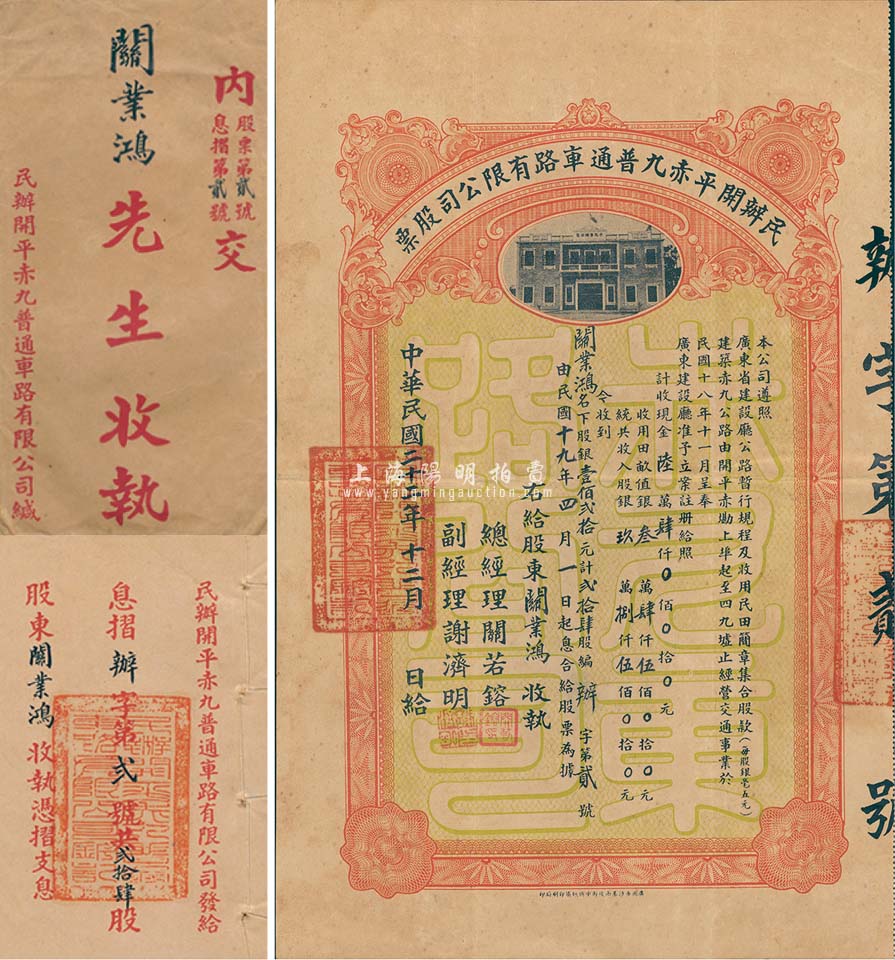 内
股票第貳號
息摺第貳號
交
關業鴻先生收執
民辦開平赤九普通車路有限公司緘
民辦開平赤九普通車路有限公司發給
息摺辦字第弐號共弐拾肆股
股東關業鴻收執憑摺支息
民辦開平赤九普通車路有限公司股票
本公司遵照
廣東省建設廳公路暫行規程及收用民田簡章集合股款(每股銀毫五元)
建築赤九公路由開平赤磡上埠起至四九墟止經營交通事業於
民國十八年十一月呈奉
廣東建設廳准予立案註册給照
計收現金陸萬肆仟0佰0拾0元
收用田畝值銀叁萬肆仟伍佰0拾0元
統共收入股銀玖萬捌仟伍佰0拾0元
今收到
關業鴻名下股銀壹佰弍拾元計弍拾肆股編辦字第貳號
由民國十九年四月一日起息合給股票為據
右給股東關業鴻收執
總經理關若鎔
副經理謝濟明
中華民國二十三年十二月日給
辦字第貳號
上海陽明拍賣
www.yangmingauction.com